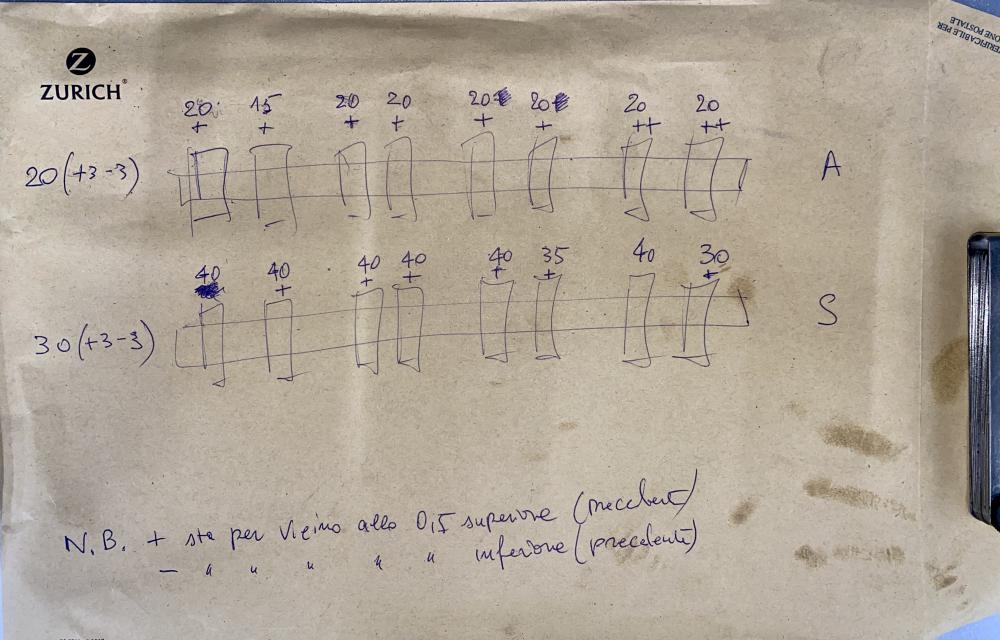 ZURICH®
ERTIFICABILE PER
ONE POSTALE
20 15 20 20 20 20 20 20
+ + + + + + ++ ++
20(+3-3) A
40 40 40 40 40 35 40 30
+ + + + + +
30(+3-3) S
N.B. + sta per vicino allo 0,5 superiore (precedente)
- " " " " " inferiore (precedente)